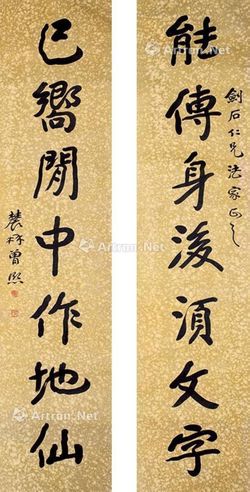 能傳身後須文字
劍石仁兄法家正之
已嚮閒中作地仙
農髯曾熙
Artron.Net